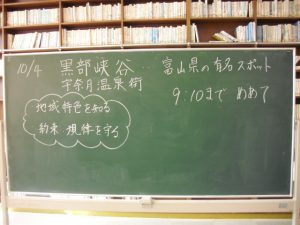 10/4 黒部峡谷 … 富山県の有名スポット
宇奈月温泉街
9:10まで めあて
地域特色を知る
約束・規律を守る